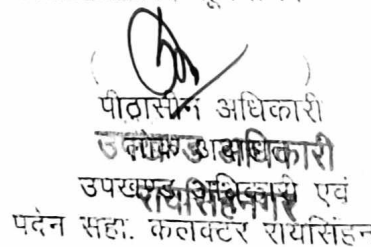 ( )
पीठासीन अधिकारी
उपखण्ड अधिकारी
उपखण्ड अधिकारी एवं
रायसिंहनगर
पदेन सहा. कलक्टर रायसिंहन